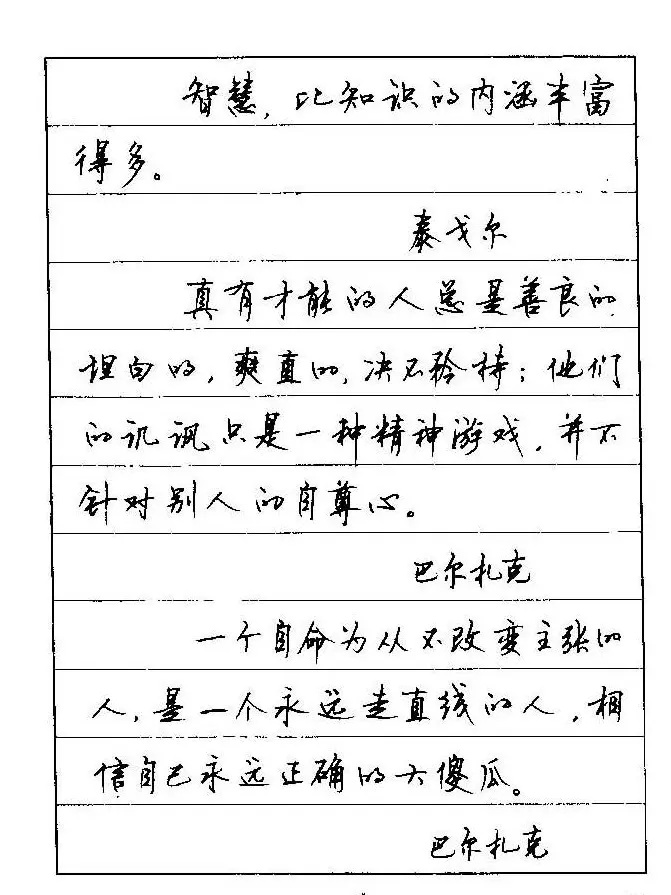 智慧，比知识的内涵丰富
得多。
泰戈尔
真有才能的人总是善良的
坦白的，爽直的，决不矜持；他们
的讥讽只是一种精神游戏，并不
针对别人的自尊心。
巴尔扎克
一个自命为从不改变主张的
人，是一个永远走直线的人，相
信自己永远正确的大傻瓜。
巴尔扎克